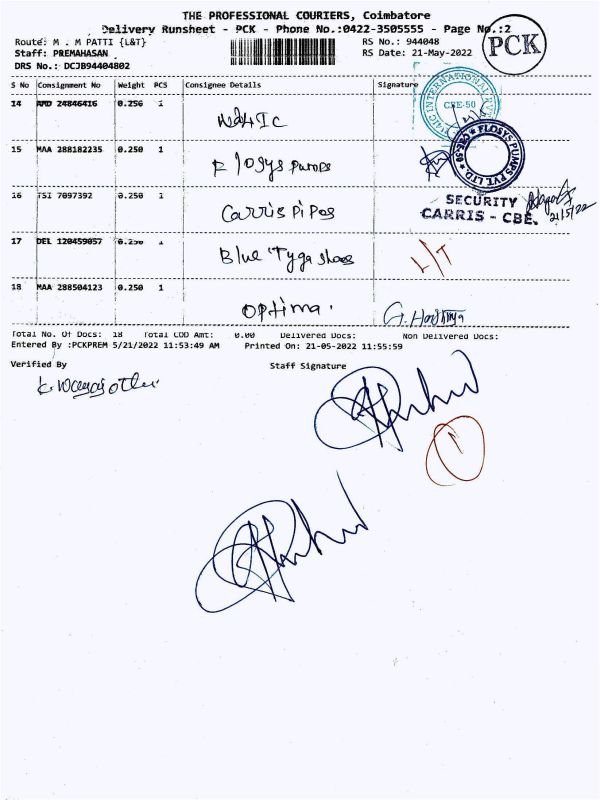 THE PROFESSIONAL COURIERS, Coimbatore
Delivery Runsheet - PCK - Phone No.:0422-3505555 - Page No.:2
PCK
Route: M . M PATTI {L&T} RS No.: 944048
Staff: PREMAHASAN RS Date: 21-May-2022
DRS No.: DCJB94404802
S No Consignment No Weight PCS Consignee Details Signature
14 AMD 24846416 0.250 1
CBE-50
15 MAA 288182235 0.250 1 Flosys Pumps
FLOSYS PUMPS PVT LTD CBE-50
16 TSI 7097392 0.250 1 Carris Pipes
SECURITY
CARRIS - CBE. 21/5/22
17 DEL 120459057 0.250 1 Blue Tyga Shoes L/T
18 MAA 288504123 0.250 1 Optima.
Total No. Of Docs: 18 Total COD Amt: 0.00 Delivered Docs: Non Delivered Docs:
Entered By :PCKPREM 5/21/2022 11:53:49 AM Printed On: 21-05-2022 11:55:59
Verified By Staff Signature